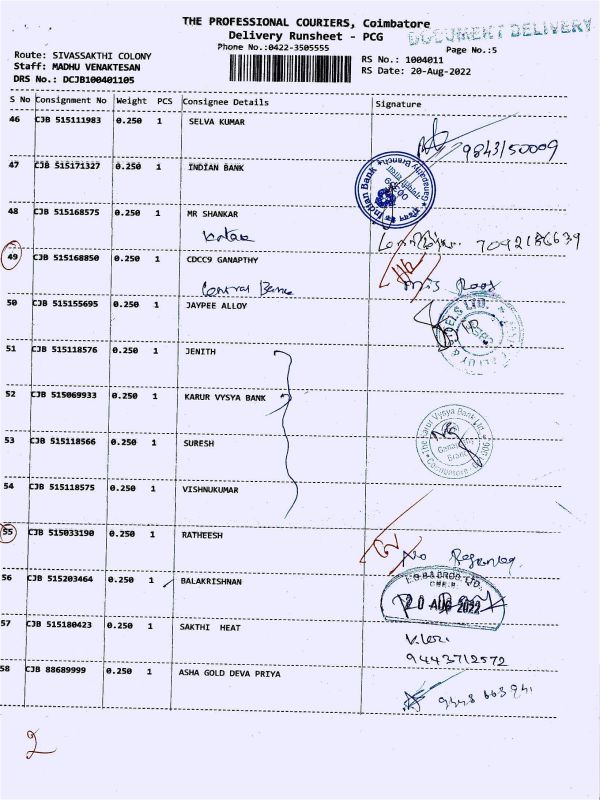 THE PROFESSIONAL COURIERS, Coimbatore
DOCUMENT DELIVERY
Delivery Runsheet - PCG
Phone No.:0422-3505555
Page No.:5
Route: SIVASSAKTHI COLONY
Staff: MADHU VENAKTESAN
DRS No.: DCJB100401105
RS No.: 1004011
RS Date: 20-Aug-2022
S No Consignment No Weight PCS Consignee Details Signature
46 CJB 515111983 0.250 1 SELVA KUMAR
9843150009
47 CJB 515171327 0.250 1 INDIAN BANK
Indian Bank
48 CJB 515168575 0.250 1 MR SHANKAR
7092186639
49 CJB 515168850 0.250 1 CDCC9 GANAPTHY
Central Bank
50 CJB 515155695 0.250 1 JAYPEE ALLOY
51 CJB 515118576 0.250 1 JENITH
52 CJB 515069933 0.250 1 KARUR VYSYA BANK
The Karur Vysya Bank Ltd.
Ganapathy
Branch
53 CJB 515118566 0.250 1 SURESH
54 CJB 515118575 0.250 1 VISHNUKUMAR
55 CJB 515033190 0.250 1 RATHEESH
No
56 CJB 515203464 0.250 1 BALAKRISHNAN
20 AUG 2022
57 CJB 515180423 0.250 1 SAKTHI HEAT
9443712572
58 CJB 88689999 0.250 1 ASHA GOLD DEVA PRIYA
2